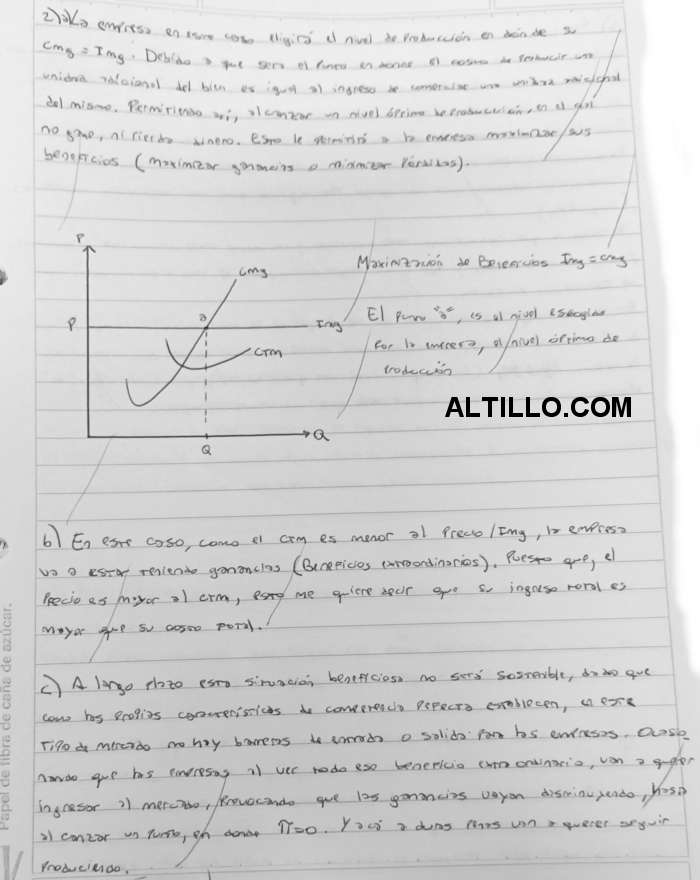 2) a) La empresa en este caso eligirá el nivel de Producción en donde su
Cmg = Img. Debido a que sera el Punto en donde el costo de Producir una
unidad adicional del bien es igual al ingreso de comercializar una unidad adicional
del mismo. Permitiendo así, alcanzar un nivel óptimo de Producción, en el cual
no gane, ni pierda dinero. Esto le permitirá a la empresa maximizar sus
beneficios (maximizar ganancias o minimizar Pérdidas).
P
Cmg
Maximización de Beneficios Img = cmg
a
P
Img
El Punto "a", es el nivel escogido
CTM
Por la empresa, el nivel óptimo de
Producción
ALTILLO.COM
Q
Q
b) En este caso, como el CTM es menor al Precio/Img, la empresa
va a estar teniendo ganancias (Beneficios extraordinarios). Puesto que, el
Precio es mayor al CTM, esto me quiere decir que su ingreso total es
mayor que su costo total.
c) A largo plazo esta situación beneficiosa no será sostenible, dado que
como las Propias características de competencia Perfecta establecen, en este
Tipo de mercado no hay barreras de entrada o salida para las empresas. Ocasio
nando que las empresas al ver todo ese beneficio extraordinario, van a querer
ingresar al mercado, Provocando que las ganancias vayan disminuyendo, hasta
alcanzar un Punto, en donde π=0. Y acá a duras Penas van a querer seguir
Produciendo.
Papel de fibra de caña de azúcar.